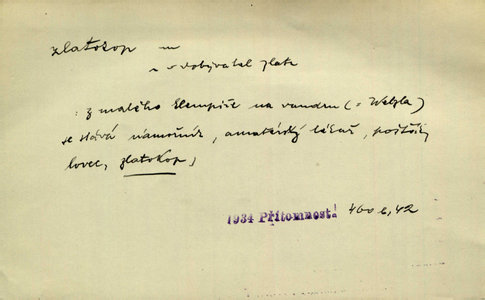 zlatokop m
= dobývatel zlata
: z malého klempíře na vandru (= Welzla)
se stává námořník, amatérský lékař, pošťák,
lovec, zlatokop,
1934 Přítomnost. 400 42